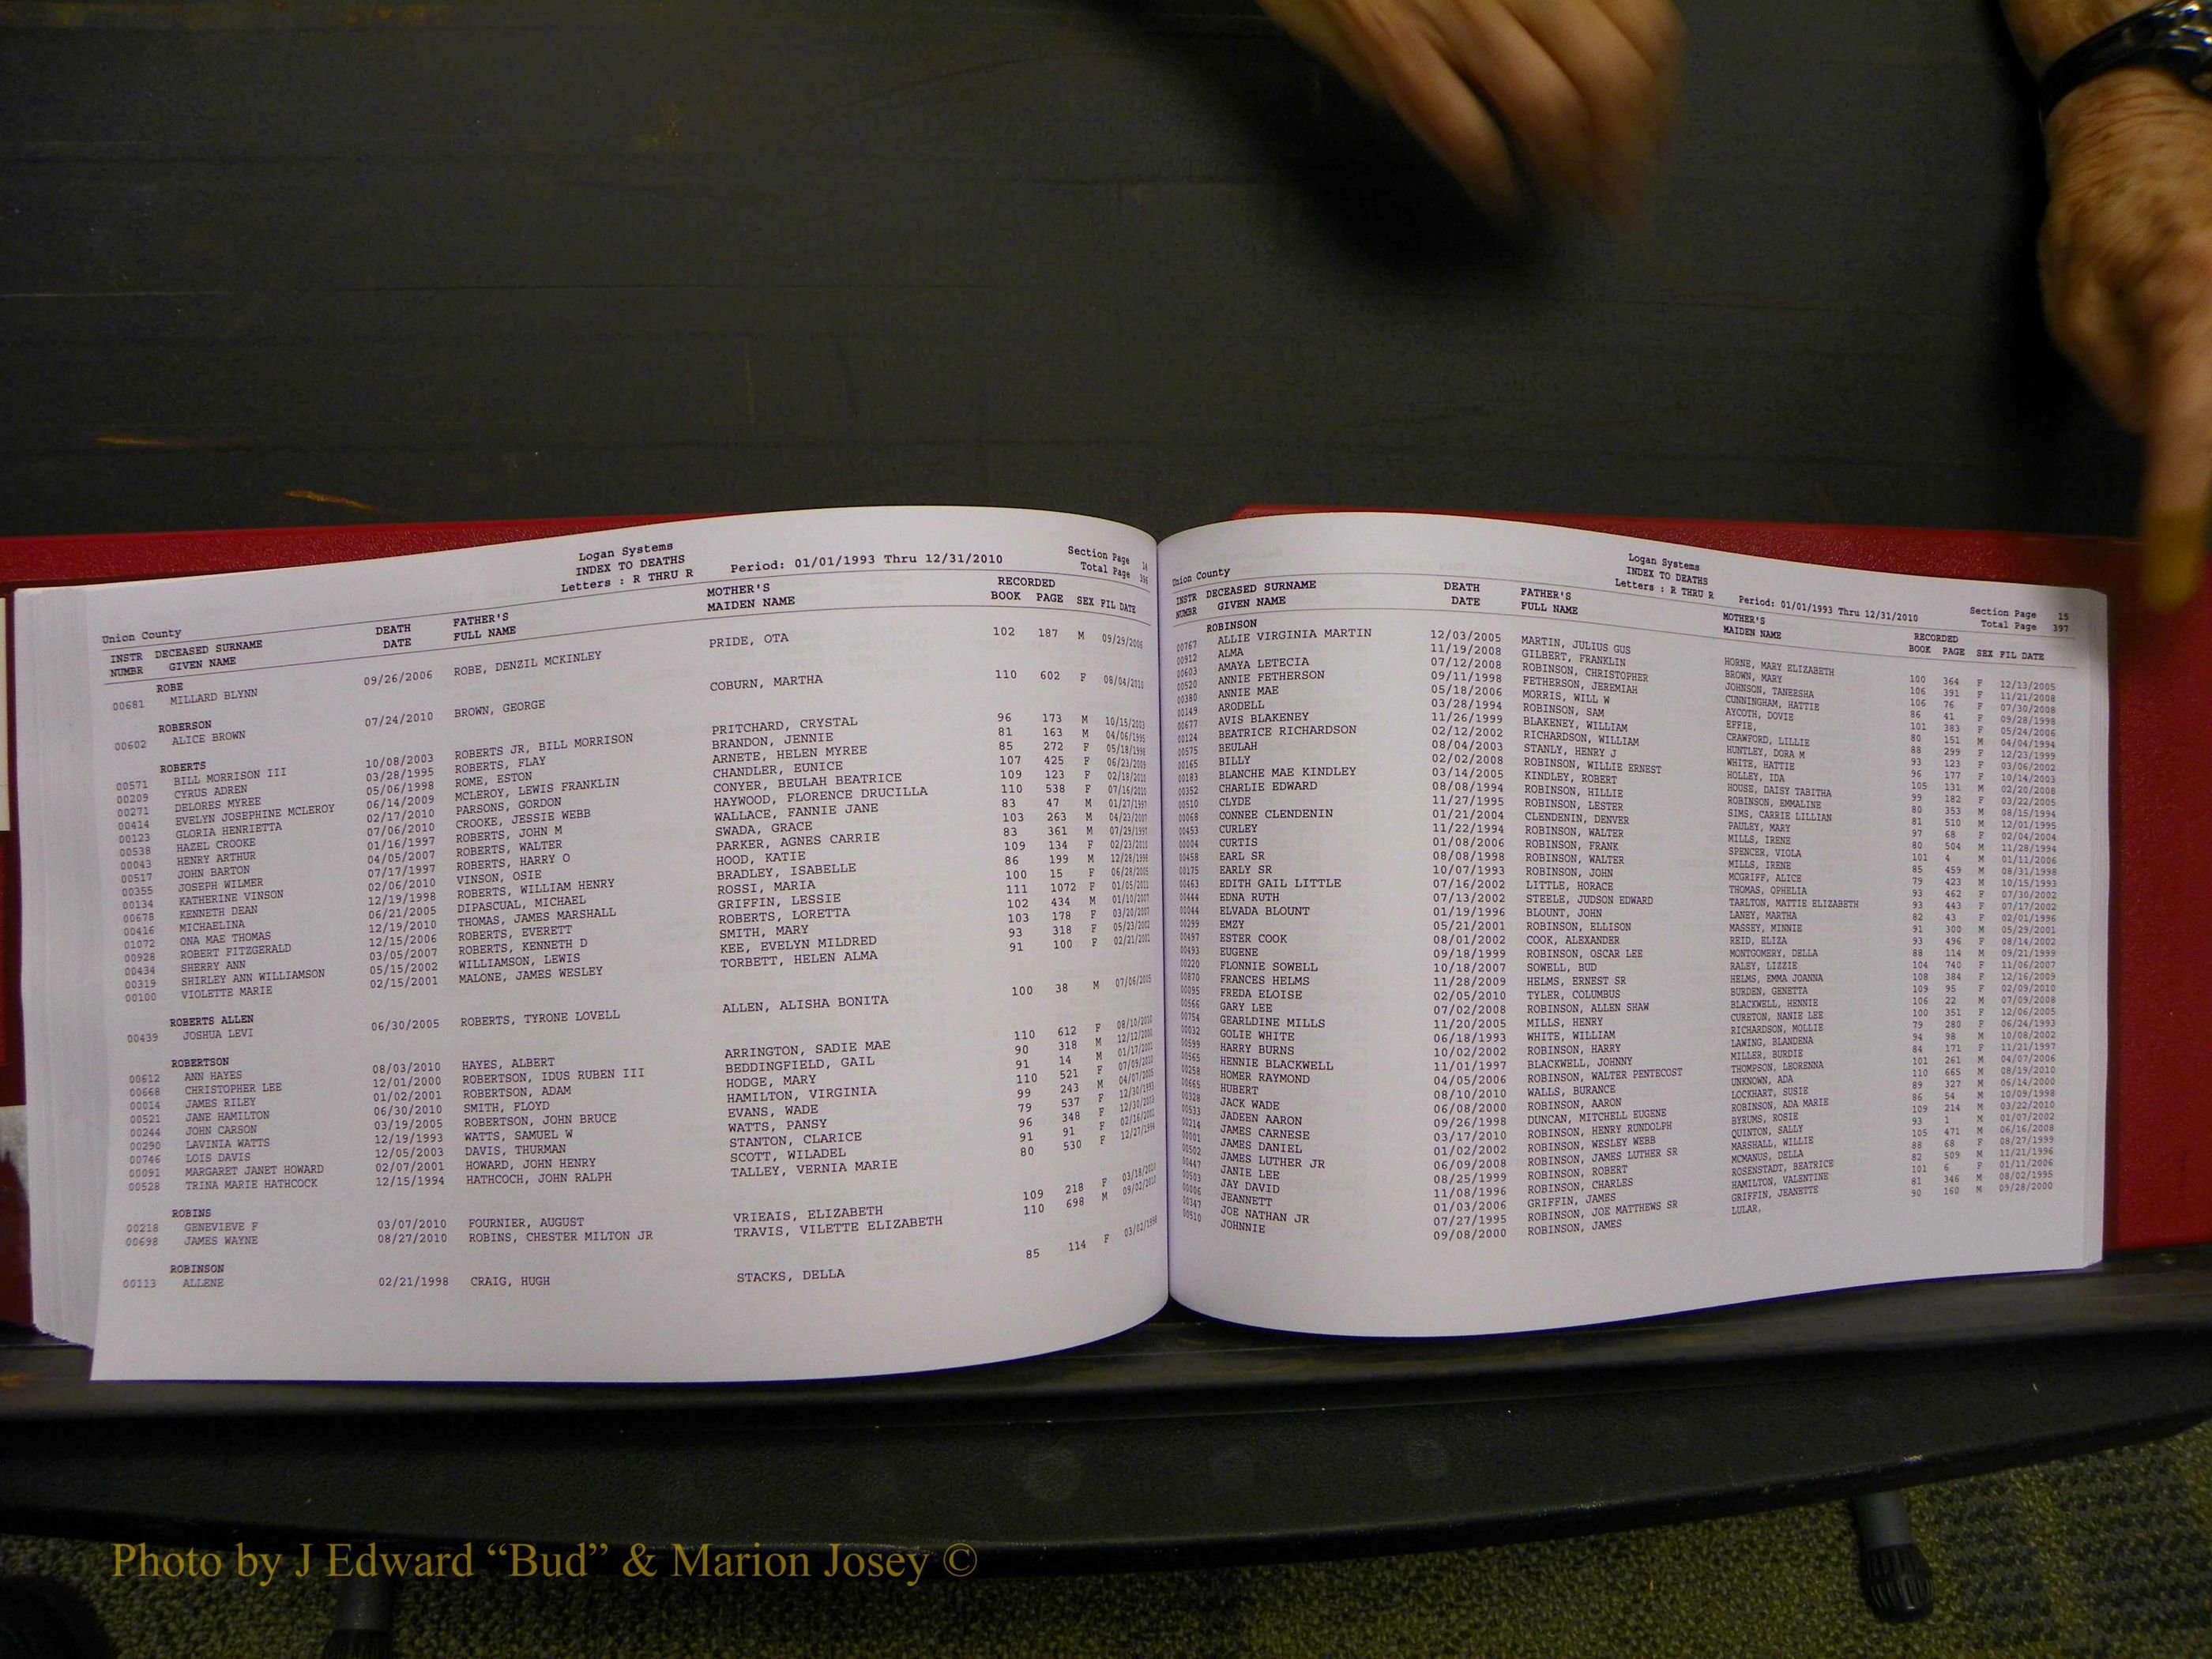 Logan Systems
INDEX TO DEATHS
Letters : R THRU R
Period: 01/01/1993 Thru 12/31/2010
Section Page 14
Total Page 396
Union County
INSTR NUMBR DECEASED SURNAME GIVEN NAME DEATH DATE FATHER'S FULL NAME MOTHER'S MAIDEN NAME RECORDED BOOK PAGE SEX FIL DATE
ROBE
00681 MILLARD BLYNN 09/26/2006 ROBE, DENZIL MCKINLEY PRIDE, OTA 102 187 M 09/29/2006
ROBERSON
00602 ALICE BROWN 07/24/2010 BROWN, GEORGE COBURN, MARTHA 110 602 F 08/04/2010
ROBERTS
00571 BILL MORRISON III 10/08/2003 ROBERTS JR, BILL MORRISON PRITCHARD, CRYSTAL 96 173 M 10/15/2003
00209 CYRUS ADREN 03/28/1995 ROBERTS, FLAY BRANDON, JENNIE 81 163 M 04/06/1995
00271 DELORES MYREE 05/06/1998 ROME, ESTON ARNETE, HELEN MYREE 85 272 F 05/18/1998
00414 EVELYN JOSEPHINE MCLEROY 06/14/2009 MCLEROY, LEWIS FRANKLIN CHANDLER, EUNICE 107 425 F 06/23/2009
00123 GLORIA HENRIETTA 02/17/2010 PARSONS, GORDON CONYER, BEULAH BEATRICE 109 123 F 02/18/2010
00538 HAZEL CROOKE 07/06/2010 CROOKE, JESSIE WEBB HAYWOOD, FLORENCE DRUCILLA 110 538 F 07/16/2010
00043 HENRY ARTHUR 01/16/1997 ROBERTS, JOHN M WALLACE, FANNIE JANE 83 47 M 01/27/1997
00517 JOHN BARTON 04/05/2007 ROBERTS, WALTER SWADA, GRACE 103 263 M 04/23/2007
00355 JOSEPH WILMER 07/17/1997 ROBERTS, HARRY O PARKER, AGNES CARRIE 83 361 M 07/29/1997
00134 KATHERINE VINSON 02/06/2010 VINSON, OSIE HOOD, KATIE 109 134 F 02/23/2010
00678 KENNETH DEAN 12/19/1998 ROBERTS, WILLIAM HENRY BRADLEY, ISABELLE 86 199 M 12/28/1998
00416 MICHAELINA 06/21/2005 DIPASCUAL, MICHAEL ROSSI, MARIA 100 15 F 06/28/2005
01072 ONA MAE THOMAS 12/19/2010 THOMAS, JAMES MARSHALL GRIFFIN, LESSIE 111 1072 F 01/05/2011
00928 ROBERT FITZGERALD 12/15/2006 ROBERTS, EVERETT ROBERTS, LORETTA 102 434 M 01/10/2007
00434 SHERRY ANN 03/05/2007 ROBERTS, KENNETH D SMITH, MARY 103 178 F 03/20/2007
00319 SHIRLEY ANN WILLIAMSON 05/15/2002 WILLIAMSON, LEWIS KEE, EVELYN MILDRED 93 318 F 05/23/2002
00100 VIOLETTE MARIE 02/15/2001 MALONE, JAMES WESLEY TORBETT, HELEN ALMA 91 100 F 02/21/2001
ROBERTS ALLEN
00439 JOSHUA LEVI 06/30/2005 ROBERTS, TYRONE LOVELL ALLEN, ALISHA BONITA 100 38 M 07/06/2005
ROBERTSON
00612 ANN HAYES 08/03/2010 HAYES, ALBERT ARRINGTON, SADIE MAE 110 612 F 08/10/2010
00668 CHRISTOPHER LEE 12/01/2000 ROBERTSON, IDUS RUBEN III BEDDINGFIELD, GAIL 90 318 M 12/12/2000
00014 JAMES RILEY 01/02/2001 ROBERTSON, ADAM HODGE, MARY 91 14 M 01/17/2001
00521 JANE HAMILTON 06/30/2010 SMITH, FLOYD HAMILTON, VIRGINIA 110 521 F 07/09/2010
00244 JOHN CARSON 03/19/2005 ROBERTSON, JOHN BRUCE EVANS, WADE 99 243 M 04/07/2005
00290 LAVINIA WATTS 12/19/1993 WATTS, SAMUEL W WATTS, PANSY 79 537 F 12/30/1993
00746 LOIS DAVIS 12/05/2003 DAVIS, THURMAN STANTON, CLARICE 96 348 F 12/30/2003
00091 MARGARET JANET HOWARD 02/07/2001 HOWARD, JOHN HENRY SCOTT, WILADEL 91 91 F 02/16/2001
00528 TRINA MARIE HATHCOCK 12/15/1994 HATHCOCH, JOHN RALPH TALLEY, VERNIA MARIE 80 530 F 12/27/1994
ROBINS
00218 GENEVIEVE F 03/07/2010 FOURNIER, AUGUST VRIEAIS, ELIZABETH 109 218 F 03/18/2010
00698 JAMES WAYNE 08/27/2010 ROBINS, CHESTER MILTON JR TRAVIS, VILETTE ELIZABETH 110 698 M 09/02/2010
ROBINSON
00113 ALLENE 02/21/1998 CRAIG, HUGH STACKS, DELLA 85 114 F 03/02/1998
Logan Systems
INDEX TO DEATHS
Letters : R THRU R
Period: 01/01/1993 Thru 12/31/2010
Section Page 15
Total Page 397
Union County
INSTR NUMBR DECEASED SURNAME GIVEN NAME DEATH DATE FATHER'S FULL NAME MOTHER'S MAIDEN NAME RECORDED BOOK PAGE SEX FIL DATE
ROBINSON
00767 ALLIE VIRGINIA MARTIN 12/03/2005 MARTIN, JULIUS GUS HORNE, MARY ELIZABETH 100 364 F 12/13/2005
00912 ALMA 11/19/2008 GILBERT, FRANKLIN BROWN, MARY 106 391 F 11/21/2008
00603 AMAYA LETECIA 07/12/2008 ROBINSON, CHRISTOPHER JOHNSON, TANEESHA 106 76 F 07/30/2008
00520 ANNIE FETHERSON 09/11/1998 FETHERSON, JEREMIAH CUNNINGHAM, HATTIE 86 41 F 09/28/1998
00380 ANNIE MAE 05/18/2006 MORRIS, WILL W AYCOTH, DOVIE 101 383 F 05/24/2006
00149 ARODELL 03/28/1994 ROBINSON, SAM EFFIE, 80 151 M 04/04/1994
00677 AVIS BLAKENEY 11/26/1999 BLAKENEY, WILLIAM CRAWFORD, LILLIE 88 299 F 12/23/1999
00124 BEATRICE RICHARDSON 02/12/2002 RICHARDSON, WILLIAM HUNTLEY, DORA M 93 123 F 03/06/2002
00575 BEULAH 08/04/2003 STANLY, HENRY J WHITE, HATTIE 96 177 F 10/14/2003
00165 BILLY 02/02/2008 ROBINSON, WILLIE ERNEST HOLLEY, IDA 105 131 M 02/20/2008
00183 BLANCHE MAE KINDLEY 03/14/2005 KINDLEY, ROBERT HOUSE, DAISY TABITHA 99 182 F 03/22/2005
00352 CHARLIE EDWARD 08/08/1994 ROBINSON, HILLIE ROBINSON, EMMALINE 80 353 M 08/15/1994
00510 CLYDE 11/27/1995 ROBINSON, LESTER SIMS, CARRIE LILLIAN 81 510 M 12/01/1995
00068 CONNEE CLENDENIN 01/21/2004 CLENDENIN, DENVER PAULEY, MARY 97 68 F 02/04/2004
00453 CURLEY 11/22/1994 ROBINSON, WALTER MILLS, IRENE 80 504 M 11/28/1994
00004 CURTIS 01/08/2006 ROBINSON, FRANK SPENCER, VIOLA 101 4 M 01/11/2006
00458 EARL SR 08/08/1998 ROBINSON, WALTER MILLS, IRENE 85 459 M 08/31/1998
00175 EARLY SR 10/07/1993 ROBINSON, JOHN MCGRIFF, ALICE 79 423 M 10/15/1993
00463 EDITH GAIL LITTLE 07/16/2002 LITTLE, HORACE THOMAS, OPHELIA 93 462 F 07/30/2002
00444 EDNA RUTH 07/13/2002 STEELE, JUDSON EDWARD TARLTON, MATTIE ELIZABETH 93 443 F 07/17/2002
00044 ELVADA BLOUNT 01/19/1996 BLOUNT, JOHN LANEY, MARTHA 82 43 F 02/01/1996
00299 EMZY 05/21/2001 ROBINSON, ELLISON MASSEY, MINNIE 91 300 M 05/29/2001
00497 ESTER COOK 08/01/2002 COOK, ALEXANDER REID, ELIZA 93 496 F 08/14/2002
00493 EUGENE 09/18/1999 ROBINSON, OSCAR LEE MONTGOMERY, DELLA 88 114 M 09/21/1999
00220 FLONNIE SOWELL 10/18/2007 SOWELL, BUD RALEY, LIZZIE 104 740 F 11/06/2007
00870 FRANCES HELMS 11/28/2009 HELMS, ERNEST SR HELMS, EMMA JOANNA 108 384 F 12/16/2009
00095 FREDA ELOISE 02/05/2010 TYLER, COLUMBUS BURDEN, GENETTA 109 95 F 02/09/2010
00566 GARY LEE 07/02/2008 ROBINSON, ALLEN SHAW BLACKWELL, HENNIE 106 22 M 07/09/2008
00754 GEARLDINE MILLS 11/20/2005 MILLS, HENRY CURETON, NANIE LEE 100 351 F 12/06/2005
00032 GOLIE WHITE 06/18/1993 WHITE, WILLIAM RICHARDSON, MOLLIE 79 280 F 06/24/1993
00599 HARRY BURNS 10/02/2002 ROBINSON, HARRY LAWING, BLANDENA 94 98 M 10/08/2002
00565 HENNIE BLACKWELL 11/01/1997 BLACKWELL, JOHNNY MILLER, BURDIE 84 171 F 11/21/1997
00258 HOMER RAYMOND 04/05/2006 ROBINSON, WALTER PENTECOST THOMPSON, LEORENNA 101 261 M 04/07/2006
00665 HUBERT 08/10/2010 WALLS, BURANCE UNKNOWN, ADA 110 665 M 08/19/2010
00328 JACK WADE 06/08/2000 ROBINSON, AARON LOCKHART, SUSIE 89 327 M 06/14/2000
00533 JADEEN AARON 09/26/1998 DUNCAN, MITCHELL EUGENE ROBINSON, ADA MARIE 86 54 M 10/09/1998
00214 JAMES CARNESE 03/17/2010 ROBINSON, HENRY RUNDOLPH BYRUMS, ROSIE 109 214 M 03/22/2010
00001 JAMES DANIEL 01/02/2002 ROBINSON, WESLEY WEBB QUINTON, SALLY 93 1 M 01/07/2002
00502 JAMES LUTHER JR 06/09/2008 ROBINSON, JAMES LUTHER SR MARSHALL, WILLIE 105 471 M 06/16/2008
00447 JANIE LEE 08/25/1999 ROBINSON, ROBERT MCMANUS, DELLA 88 68 F 08/27/1999
00503 JAY DAVID 11/08/1996 ROBINSON, CHARLES ROSENSTADT, BEATRICE 82 509 M 11/21/1996
00006 JEANNETT 01/03/2006 GRIFFIN, JAMES HAMILTON, VALENTINE 101 6 F 01/11/2006
00347 JOE NATHAN JR 07/27/1995 ROBINSON, JOE MATTHEWS SR GRIFFIN, JEANETTE 81 346 M 08/02/1995
00510 JOHNNIE 09/08/2000 ROBINSON, JAMES LULAR, 90 160 M 09/28/2000
Photo by J Edward “Bud” & Marion Josey ©